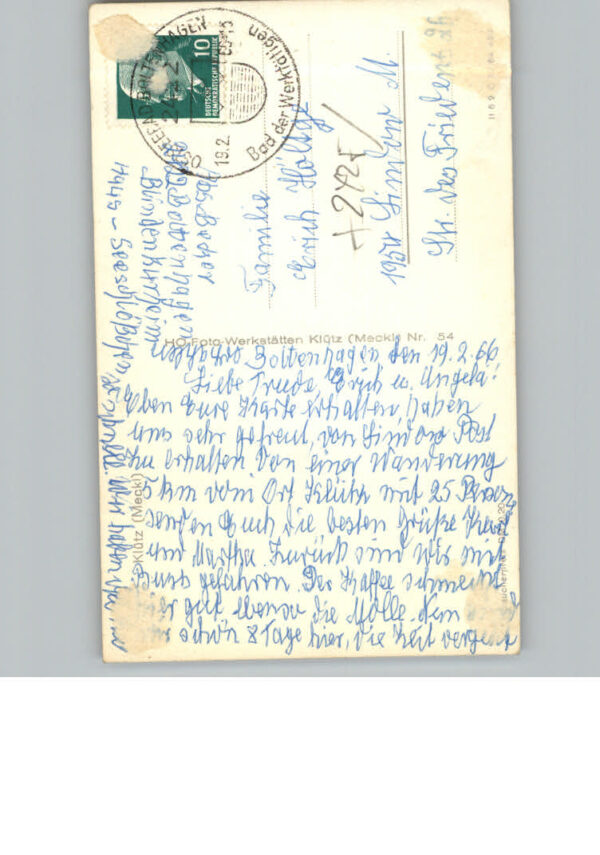 OSTSEEBAD BOLTENHAGEN
19.2.
Bad der Werktätigen
10
DEUTSCHE
DEMOKRATISCHE REPUBLIK
Boltenhagen
Blindenkurheim
Familie
Erich
+ 2425/
195 Lindow M.
Str. des Friedens
HO-Foto-Werkstätten Klütz (Meckl) Nr. 54
Boltenhagen den 19.2.66
Liebe Trude, Erich u. Angela!
Eben Eure Karte erhalten, haben
uns sehr gefreut, von Lindow Post
zu erhalten. Von einer Wanderung
5 km vom Ort Klütz mit 25 Person
senden Euch die besten Grüße Karl
und Martha. Zurück sind wir mit
Bus gefahren. Der Kaffee schmeckt
gut ebenso die Molle.
schön 8 Tage hier, die Zeit vergeht
Klütz (Meckl)